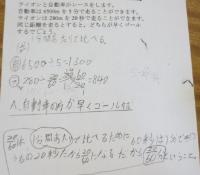 ライオンと自動車がレースをします。
自動車は6500mを5分で走ることができます。
ライオンは280mを20秒で走ることができます。
同じ距離を走るとすると、どちらが早くゴール
するでしょう。
1分間あたりで比べる。
6500÷5=1300
280÷20/60 =840
A. 自動車の方が早くゴールする
20/60は 1分間あたりで比べるために 60秒は1分で
20秒だから20/60になるだから20/60ということ。